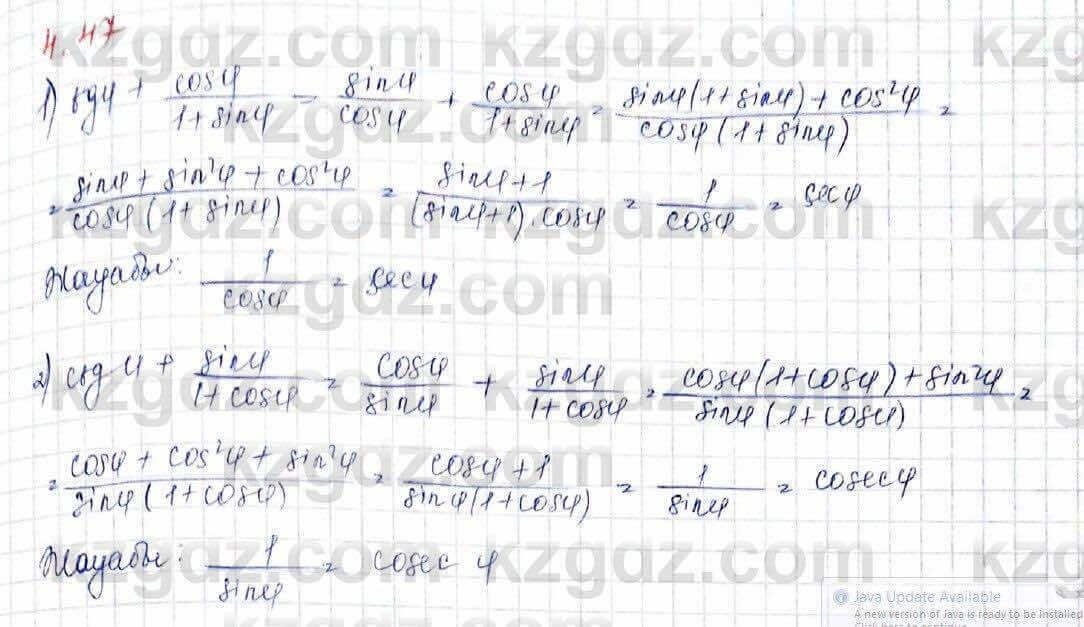 4.47
1) tgφ + cosφ/(1+sinφ) = sinφ/cosφ + cosφ/(1+sinφ) = (sinφ(1+sinφ)+cos²φ)/(cosφ(1+sinφ)) =
= (sinφ + sin²φ + cos²φ)/(cosφ(1+sinφ)) = (sinφ+1)/((sinφ+1).cosφ) = 1/cosφ = secφ
Жауабы: 1/cosφ = secφ
2) ctgφ + sinφ/(1+cosφ) = cosφ/sinφ + sinφ/(1+cosφ) = (cosφ(1+cosφ)+sin²φ)/(sinφ(1+cosφ)) =
= (cosφ + cos²φ + sin²φ)/(sinφ(1+cosφ)) = (cosφ+1)/(sinφ(1+cosφ)) = 1/sinφ = cosecφ
Жауабы: 1/sinφ = cosec φ
kzgdz.com
Java Update Available
A new version of Java is ready to be installed